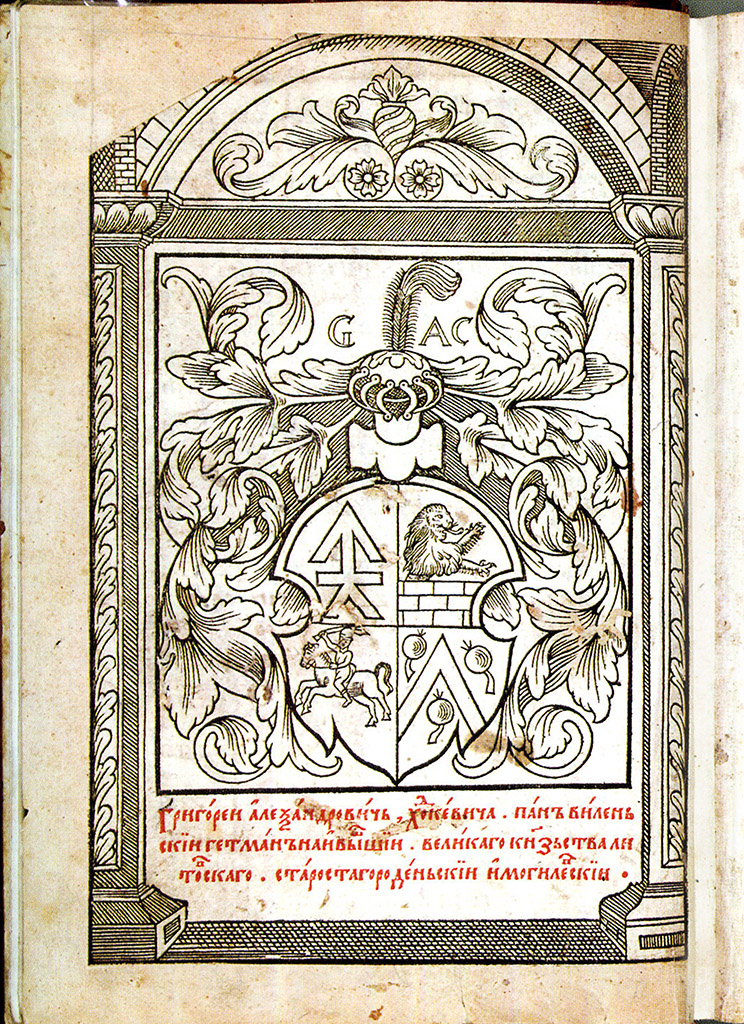 G AC
Григо́реи а҆леѯа́ндрови́чь, хо́дке́вича . па́нъ ви́лень
скїи гетма́нъ наивы́шшїи . вели́каго кнѧ́зьства ли
то́вскаго . ста́роста городе́ньскїи и҆ могиле́вскїи .